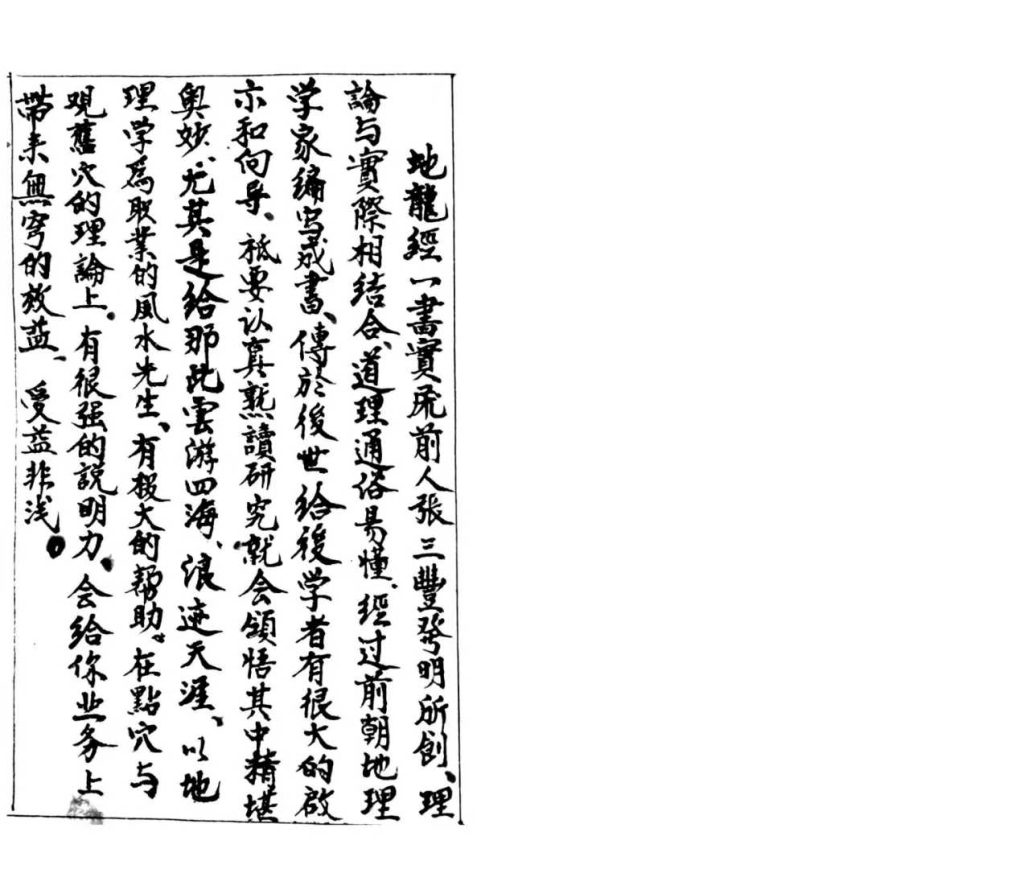 地龍經一書實屬前人張三豐發明所創、理
論与實際相结合、道理通俗易懂、經过前朝地理
学家编写成書、傳於後世给後学者有很大的啟
示和向导、祗要认真熟讀研究就会領悟其中精堪
奥妙、尤其是给那此雲游四海、浪迹天涯、以地
理学爲职業的風水先生、有极大的帮助。在點穴与
观舊穴的理論上、有很强的説明力、会给你业务上
带来無穷的效益、受益非浅。